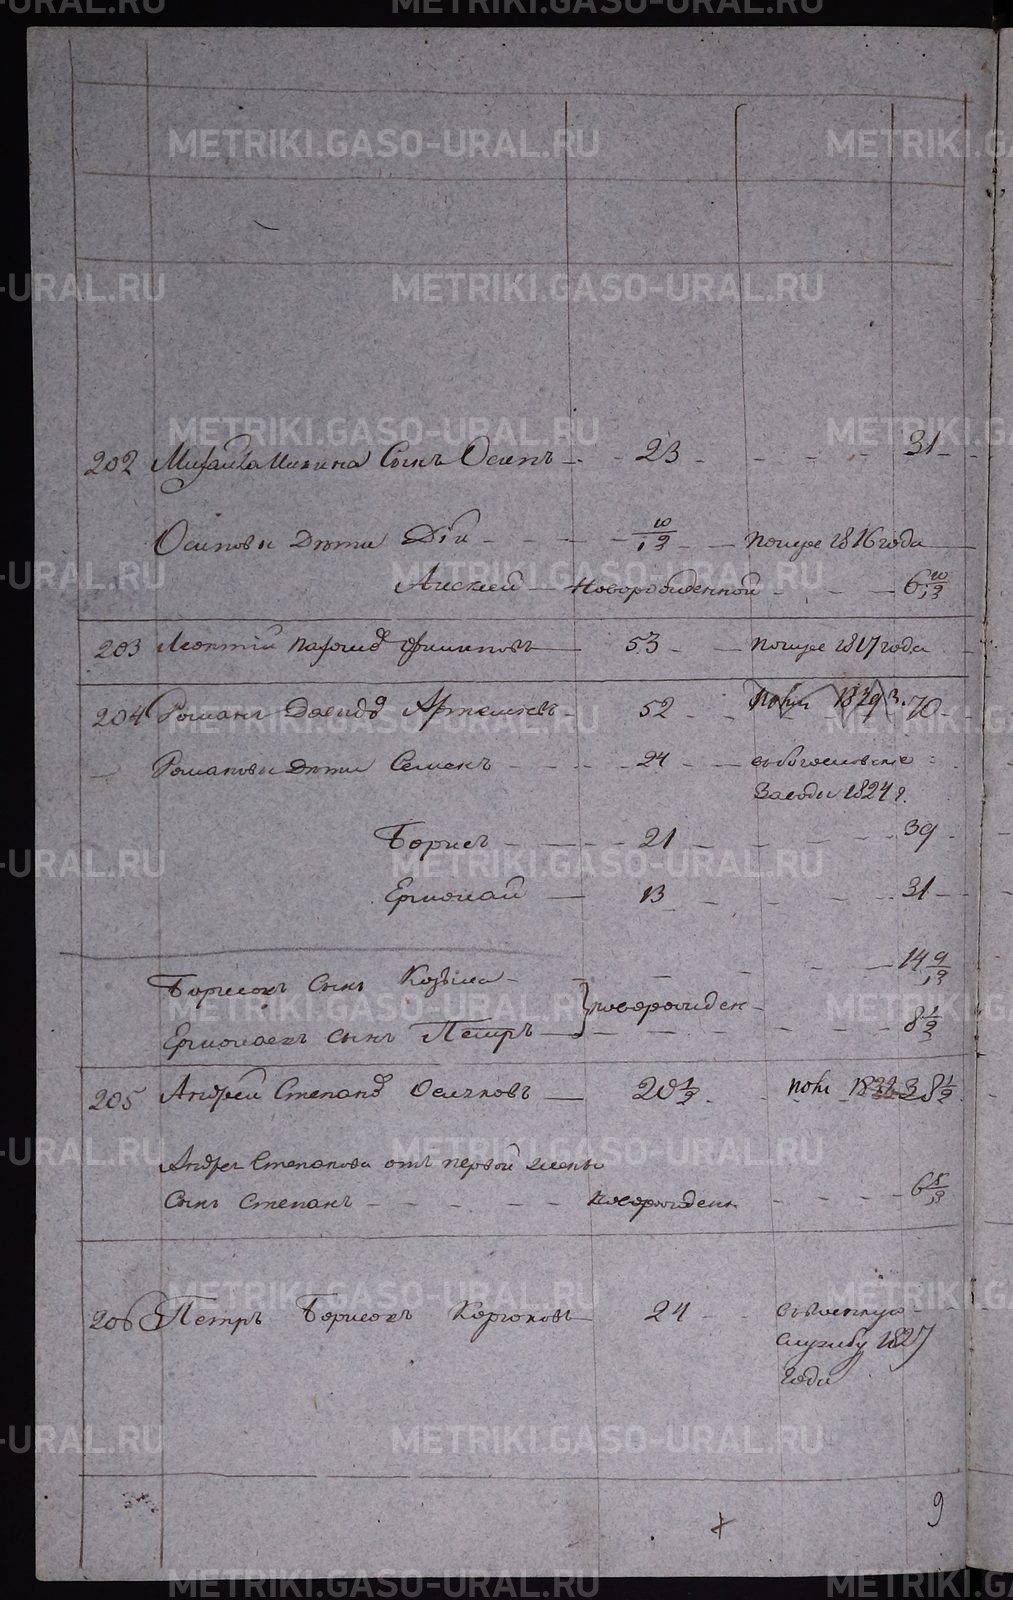 202 Михаила Микина Сынъ Осипъ 23 31
Осиповы дѣти Дій 10/12 помре 1816 года
Алексей новорожденной 6 10/12
203 Леонтій Филиповъ 53 помре 1817 года
204 Романъ Давидо Артемьевъ 52 70
Романовы дѣти Семенъ 24 въ богословские
заводы 1824 г.
Борисъ 21 39
Ермолай 13 31
Борисовъ сынъ Козьма 14
новорожден
Ермолаевъ сынъ Петръ 8 1/2
205 Андрей Степано Осинковъ 20 1/2 38 1/2
Андрея Степанова отъ первой жены
сынъ Степанъ новорожденъ 6
206 Петръ Борисовъ Корюковъ 24 въ военную
службу 1827
года
9
METRIKI.GASO-URAL.RU